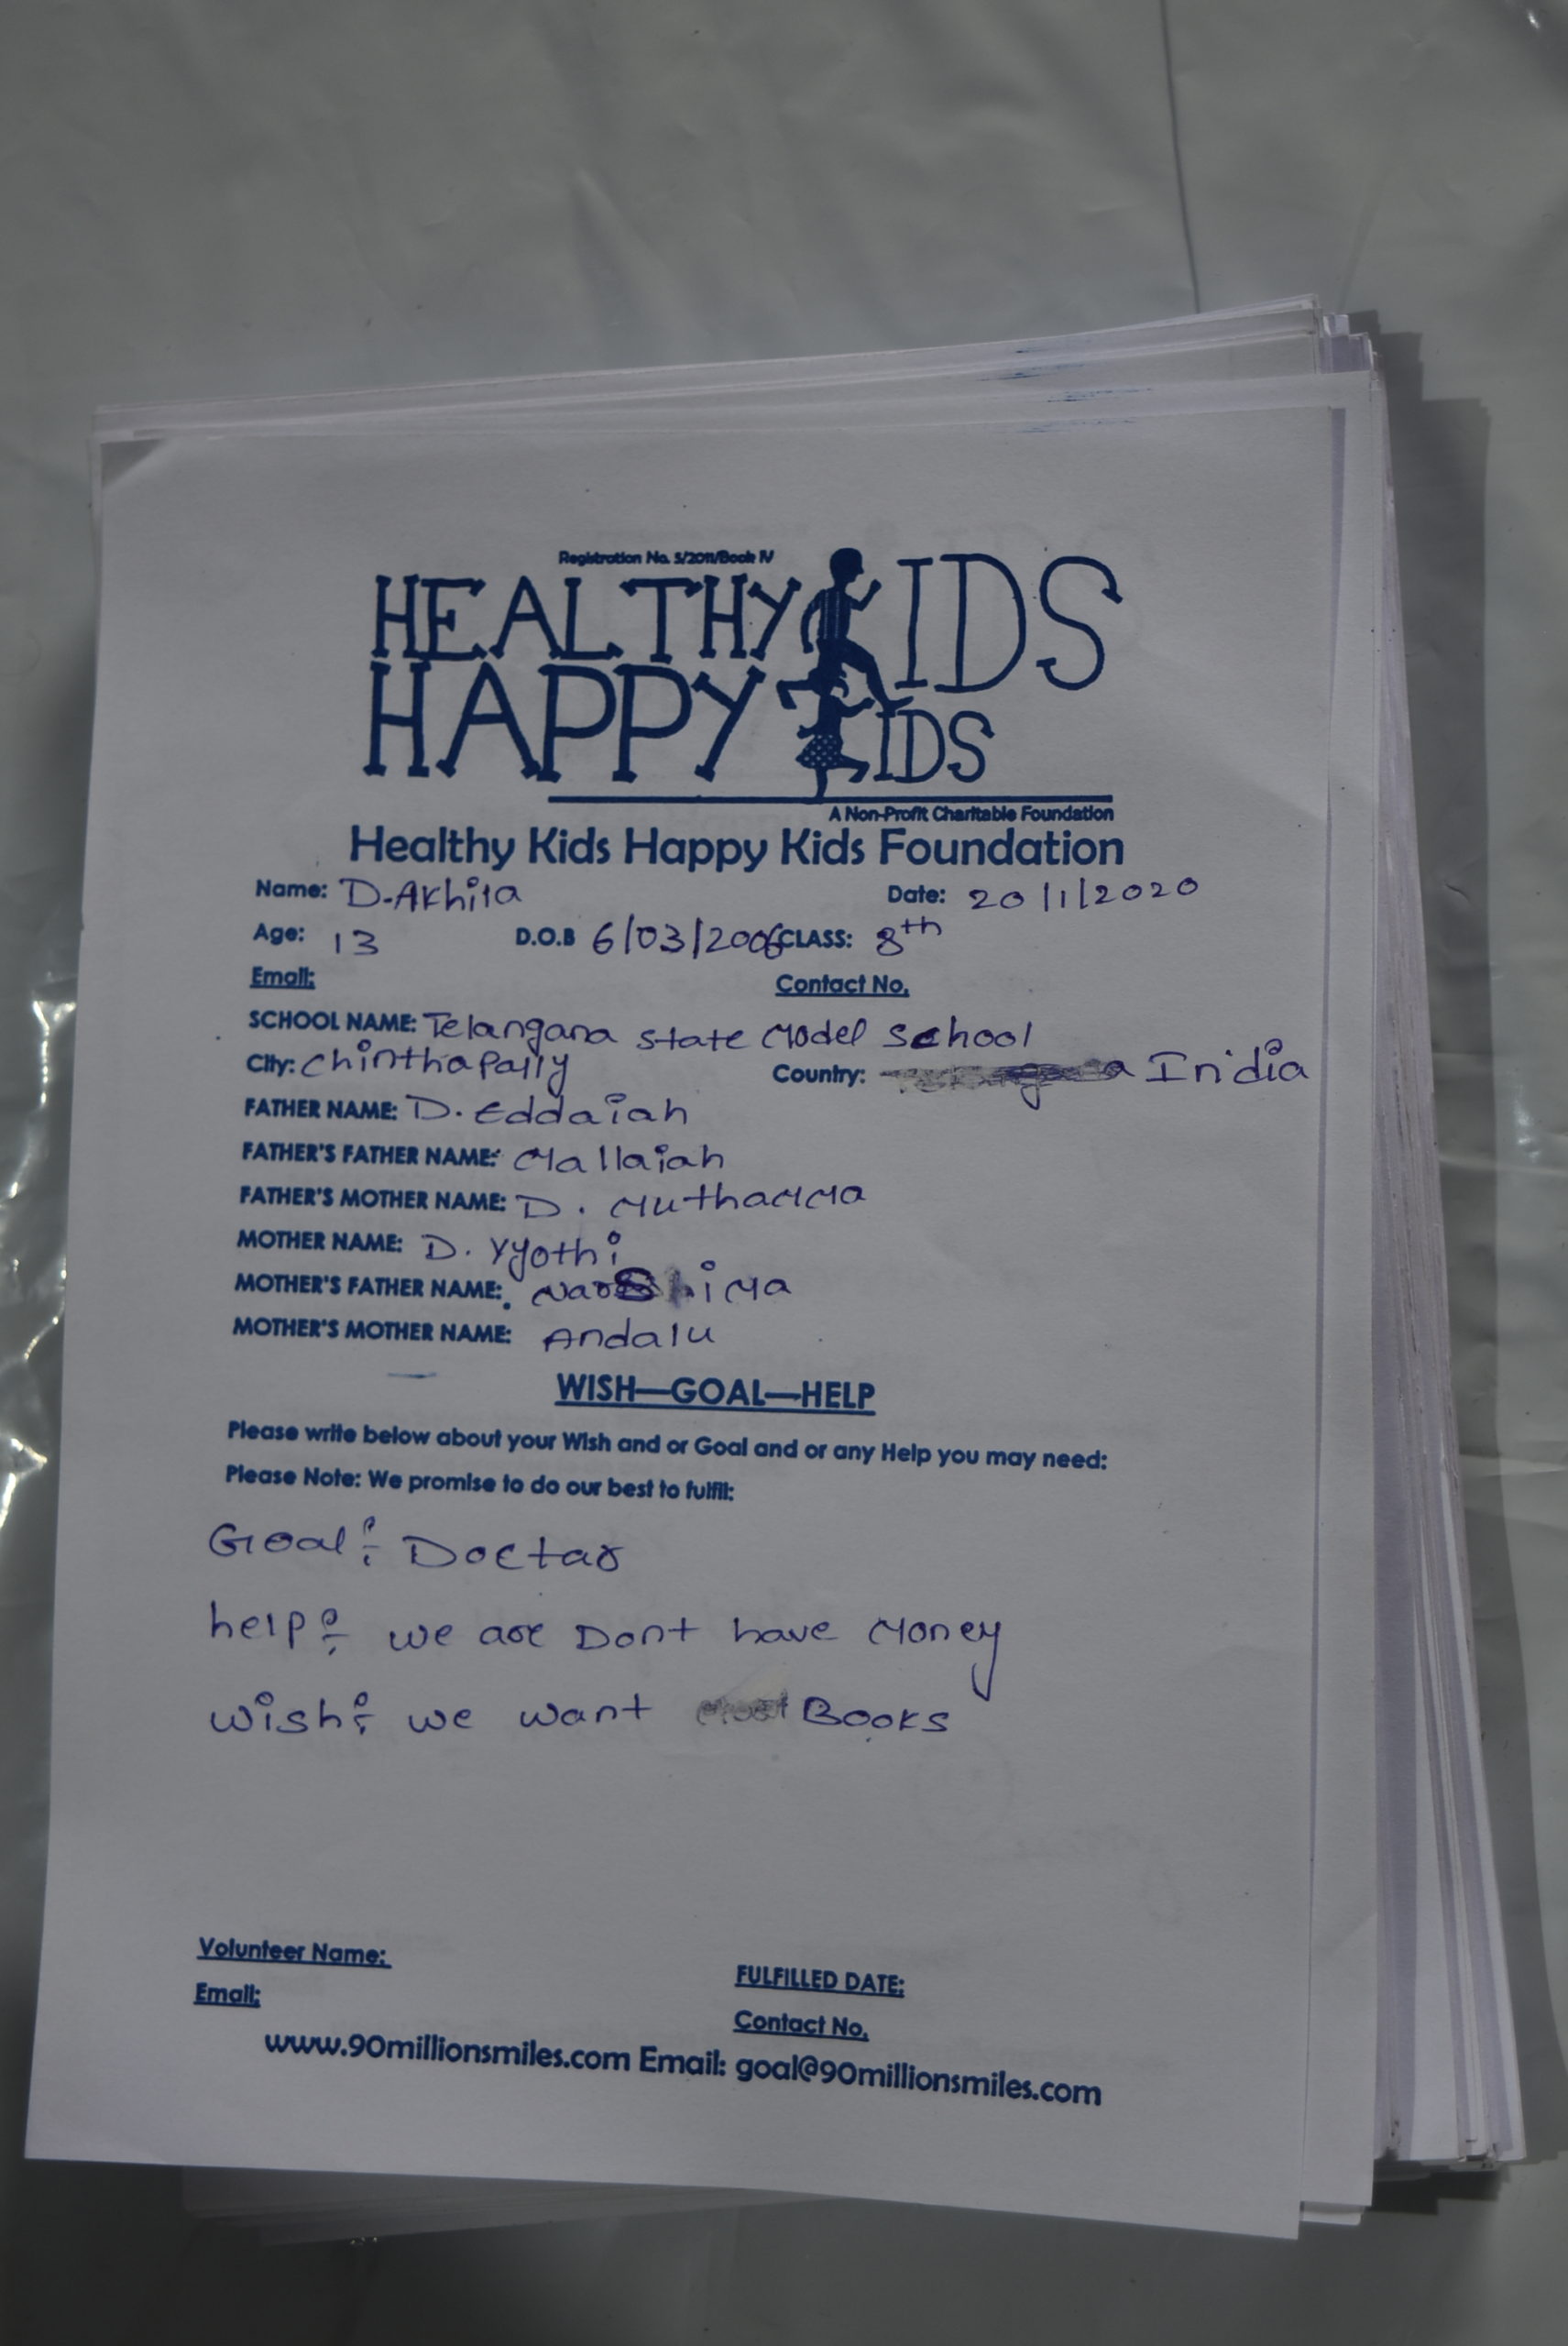 Registration No. 5/2011/Book IV
HEALTHY KIDS
HAPPY KIDS
A Non-Profit Charitable Foundation
Healthy Kids Happy Kids Foundation
Name: D.Akhila Date: 20/1/2020
Age: 13 D.O.B 6/03/2006 CLASS: 8th
Email: Contact No.
SCHOOL NAME: Telangana state Model school
City: Chinthapally Country: India
FATHER NAME: D. Eddaiah
FATHER'S FATHER NAME: Mallaiah
FATHER'S MOTHER NAME: D. Muthamma
MOTHER NAME: D. Yyothi
MOTHER'S FATHER NAME: Narshima
MOTHER'S MOTHER NAME: Andalu
WISH—GOAL—HELP
Please write below about your Wish and or Goal and or any Help you may need:
Please Note: We promise to do our best to fulfil:
Goal:- Doctar
help:- we are Dont have Money
wish:- we want Books
Volunteer Name: FULFILLED DATE:
Email: Contact No.
www.90millionsmiles.com Email: goal@90millionsmiles.com